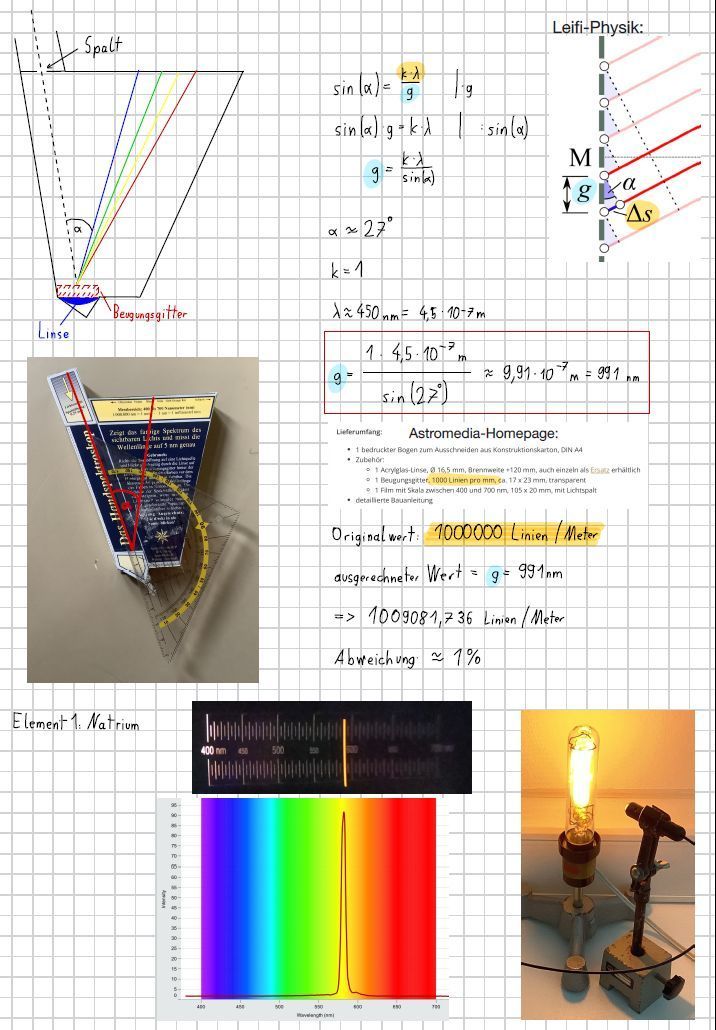 Leifi-Physik:
Spalt
α
Beugungsgitter
Linse
sin(α) = k·λ / g | ·g
sin(α) · g = k·λ | : sin(α)
g = k·λ / sin(α)
α ≈ 27°
k = 1
λ ≈ 450 nm = 4,5 · 10^-7 m
g = 1 · 4,5 · 10^-7 m / sin(27°) ≈ 9,91 · 10^-7 m = 991 nm
M
g
α
Δs
Zeigt das farbige Spektrum des
sichtbaren Lichts und misst die
Wellenlänge auf 5 nm genau
Das Handspektroskop
Lieferumfang:
Astromedia-Homepage:
1 bedruckter Bogen zum Ausschneiden aus Konstruktionskarton, DIN A4
Zubehör:
1 Acrylglas-Linse, Ø 16,5 mm, Brennweite +120 mm, auch einzeln als Ersatz erhältlich
1 Beugungsgitter, 1000 Linien pro mm, ca. 17 x 23 mm, transparent
1 Film mit Skala zwischen 400 und 700 nm, 105 x 20 mm, mit Lichtspalt
detaillierte Bauanleitung
Originalwert: 1000000 Linien/Meter
ausgerechneter Wert = g = 991nm
=> 1009081,736 Linien/Meter
Abweichung: ≈ 1%
Element 1: Natrium
400 nm 450 500 550 600
95
90
85
80
75
70
65
60
55
50
45
40
35
30
25
20
15
10
5
0
Intensity
400 450 500 550 600 650 700
Wavelength (nm)